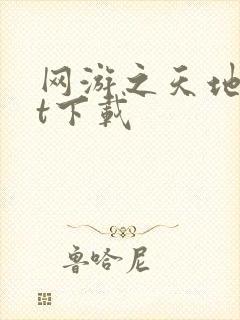 网游之天地
t下载
鲁哈尼